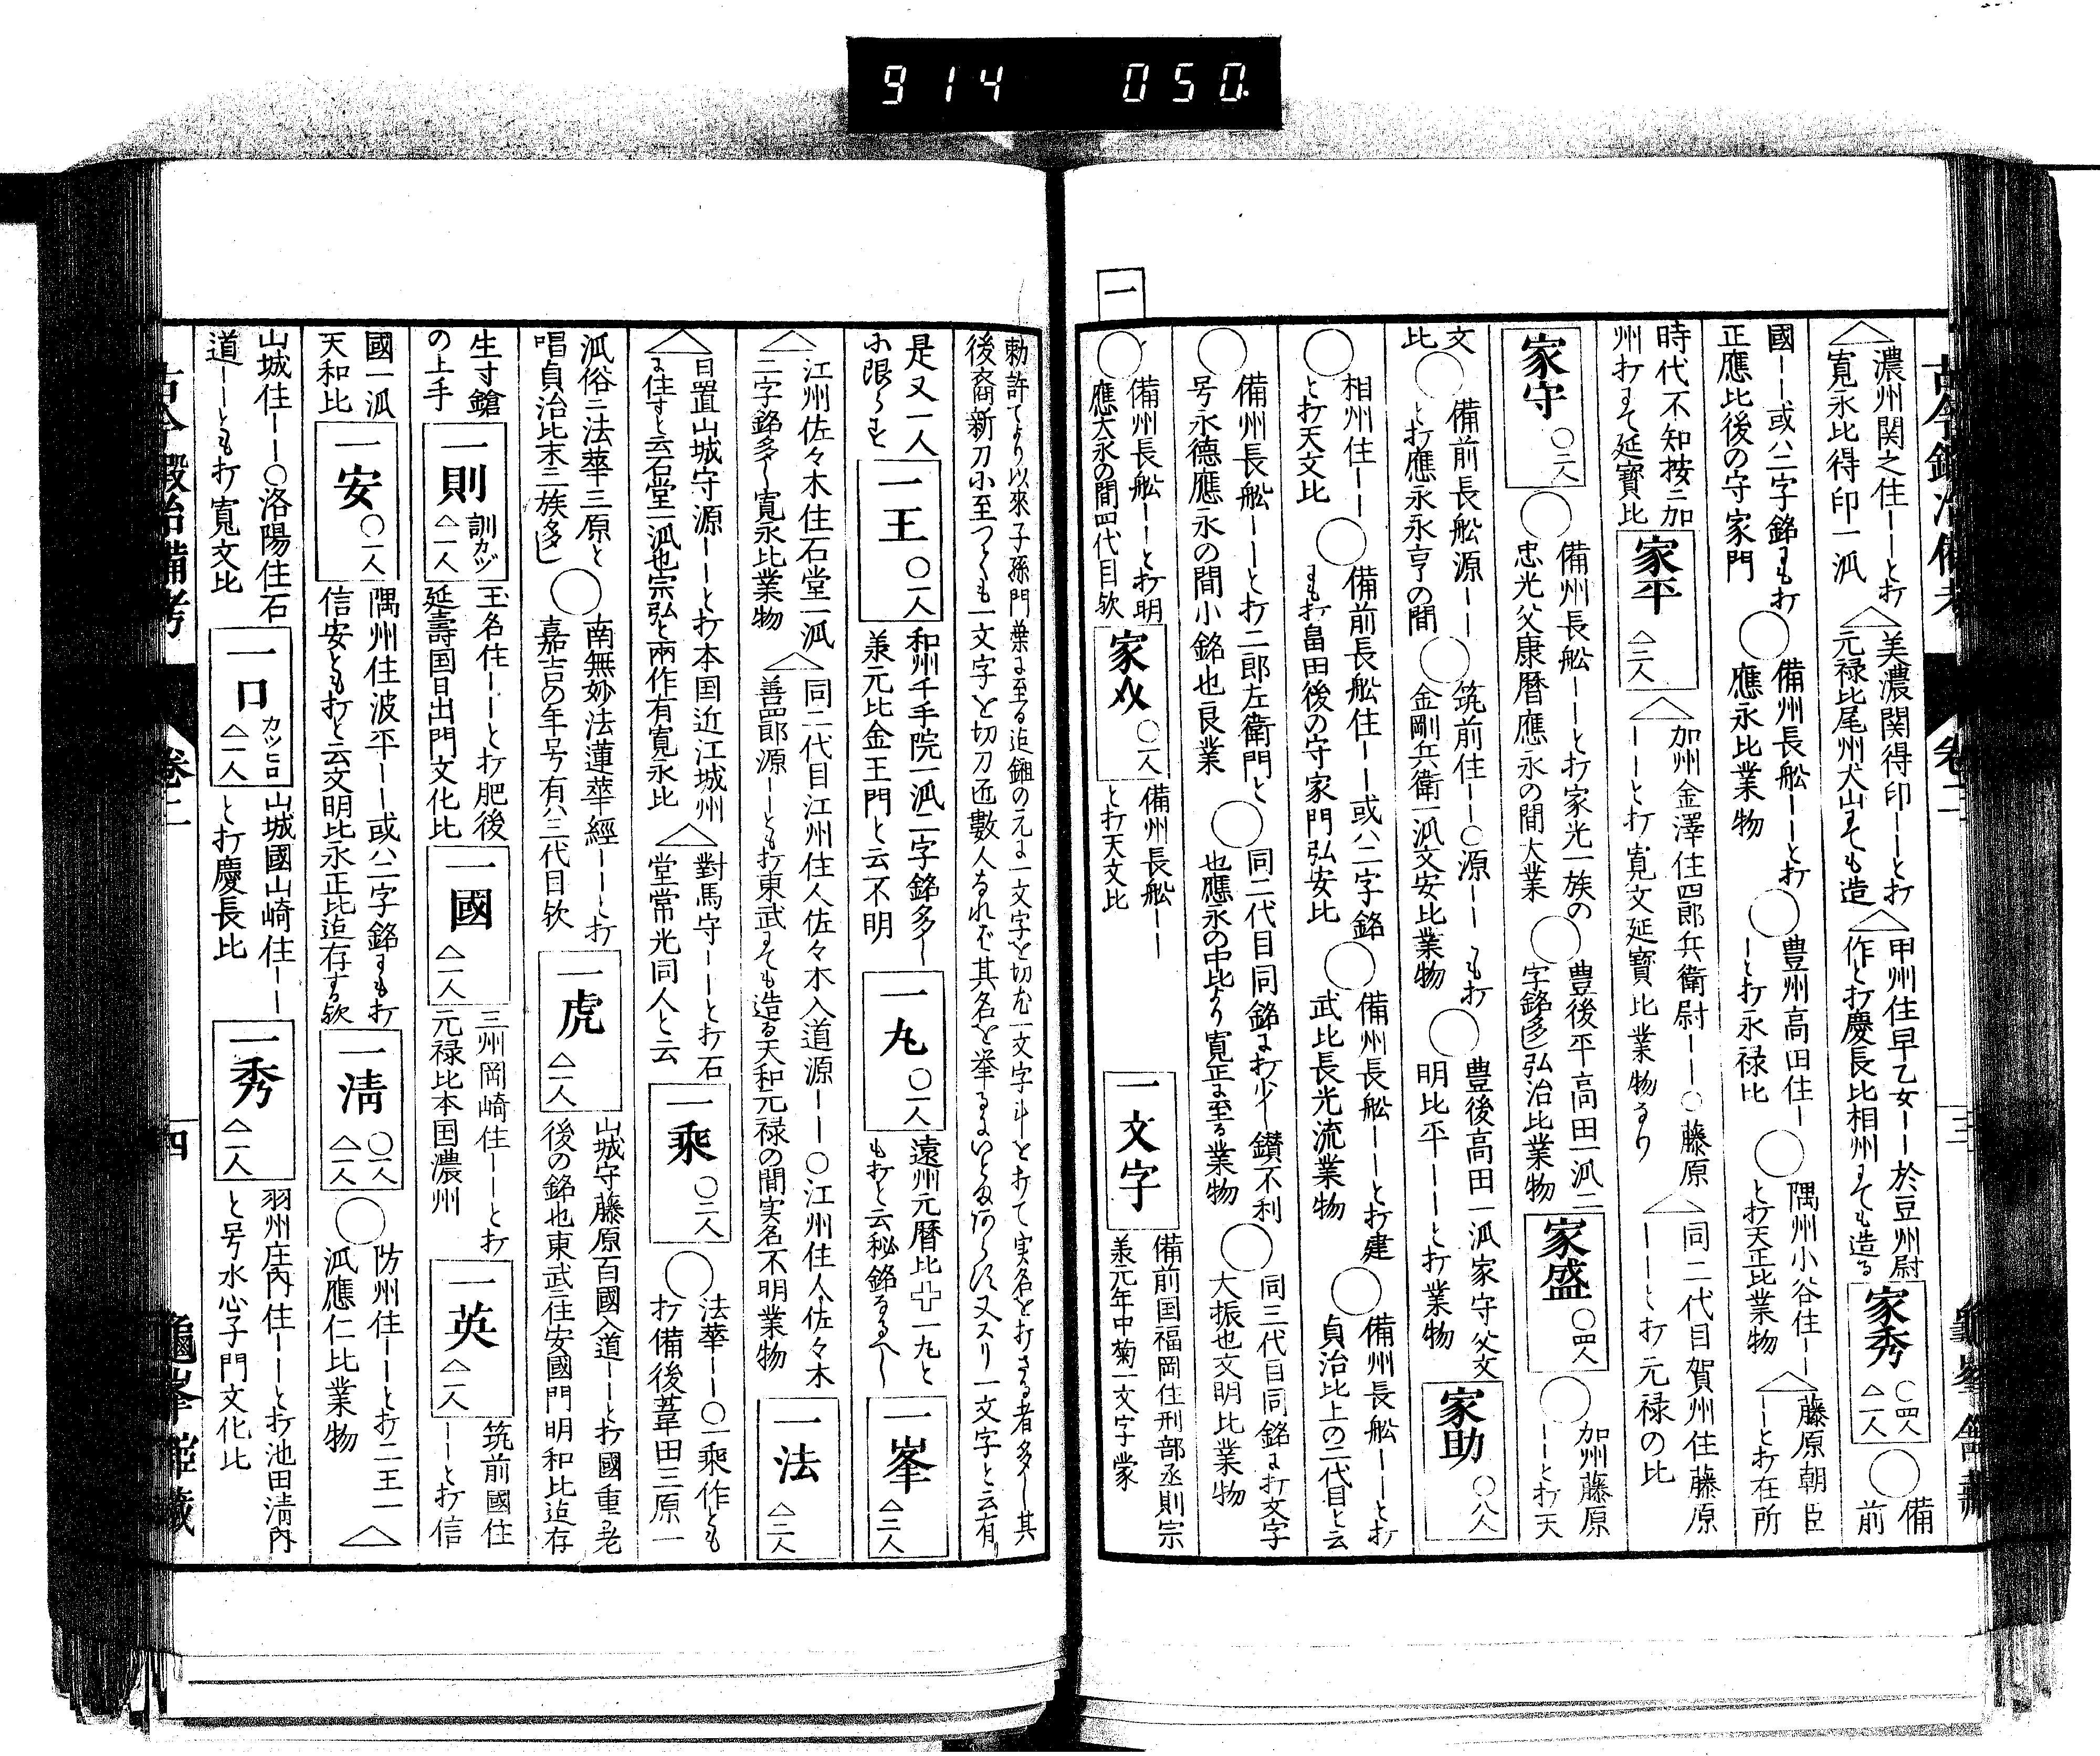 914 050.
古今鍛冶備考 卷二 三 龜峯
△濃州関之住ーーと打
寛永比得印一派
△美濃関得印ーーと打
元禄比尾州犬山ニても造
△甲州住早乙女ーー於豆州尉
作と打慶長比相州ニても造る
家秀 ○四人 △一人
○備前
國ーー或ハ二字銘ニも打
正應比後の守家門
○備州長舩ーーと打
應永比業物
○豊州高田住ー
ーと打永禄比
○隅州小谷住ーー
と打天正比業物
△藤原朝臣
ーーと打在所
時代不知按ニ加
州打ニて延寶比
家平 △三人
△加州金澤住四郎兵衛尉ーー○藤原
ーーと打寛文延寶比業物るり
△同二代目賀州住藤原
ーーと打元禄の比
家守 ○二人
○備州長舩ーーと打家光一族の
忠光父康暦應永の間大業
○豊後平高田一派二
字銘多し弘治比業物
家盛 ○四人
○加州藤原
ーーと打天
文比
○備前長舩源ーー
と打應永永亨の間
○筑前住ーー○源ーーも打
金剛兵衛一派文安比業物
○豊後高田一派家守父文
明比平ーーと打業物
家助 ○八人
○相州住ーー
と打天文比
○備前長舩住ーー或ハ二字銘
ニも打畠田後の守家門弘安比
○備州長舩ーーと打建
武比長光流業物
○備州長舩ーーと打
貞治比上の二代目と云
○備州長舩ーーと打二郎左衛門と
号永徳應永の間小銘也良業
○同二代目同銘ニ打少し鑚不利
也應永の中比より寛正ニ至る業物
○同三代目同銘ニ打文字
大振也文明比業物
一
○備州長舩ーーと打明
應大永の間四代目欤
○二人
備州長舩ーー
と打天文比
一文字
備前国福岡住刑部丞則宗
兼元年中菊一文字蒙
勅許てより以來子孫門葉ニ至る迠鎺の元ニ一文字を切尤一文字斗を打て実名を打さる者多し其
後裔新刀ニ至つても一文字を切刀匠數人あれど其名を挙る又スリ一文字と云有り
是又一人
ニ限らす
一王 ○一人
和州千手院一派二字銘多し
兼元比金王門と云不明
一丸 ○一人
遠州元暦比一丸と
も打と云秘銘るるべし
一峯 △三人
△江州佐々木住石堂一派
二字銘多し寛永比業物
△同二代目江州住人佐々木入道源ーー○江州住人佐々木
善四郎源ーとも打東武ニても造る天和元禄の間実名不明業物
一法 △二人
△日置山城守源ーーと打本国近江城州
ニ住すと云石堂一派也宗弘と兩作有寛永比
△對馬守ーーと打石
堂常光同人と云
一乘 ○二人
○法華ーー○一乘作とも
打備後葦田三原一
派俗ニ法華三原と
唱貞治比末ニ族多し
○南無妙法蓮華經ーーと打
嘉吉の年号有ハ三代目欤
一虎 △一人
山城守藤原百國入道ーーと打國重老
後の銘也東武ニ住安國門明和比迠存
生寸鎗
の上手
一則 訓カヅ △一人
玉名住ーーと打肥後
延壽国日出門文化比
一國 △一人
三州岡崎住ーーと打
元禄比本国濃州
一英 △一人
筑前國住
ーーと打信
國一派
天和比
一安 ○一人
隅州住波平ーー或ハ二字銘ニも打
信安とも打と云文明比永正比迠存する欤
一清 ○一人 △一人
○防州住ーーと打二王一
派應仁比業物
△
山城住ーー○洛陽住石
道ーーとも打寛文比
一口 カツヒロ △一人
山城國山崎住ーー
と打慶長比
一秀 △一人
羽州庄内住ーーと打池田清内
と号水心子門文化比
古今鍛冶備考 卷二 四 龜峯 藏